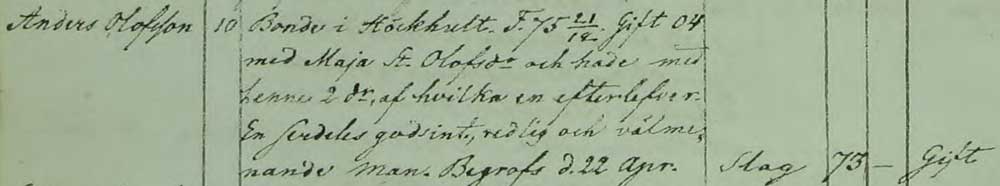 Anders Olofsson 10 Bonde i Höckhult. F. 75 21/12. Gift 04
med Maja St. Olofsdr och hade med
henne 2 dr, af hvilka en efterlefver.
En serdeles godsint, redlig och välme,
nande man. Begrofs d. 22 Apr. Slag 73 — Gift